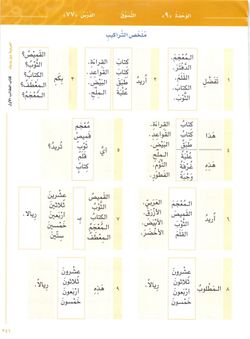 الوَحْدَة «٩»
التَّسَوُّق
الدَّرْس «٧٧»
مُلَخَّصُ التَّرَاكِيبِ
١
تَفَضَّلِ
المُعْجَمَ.
الدَّفْتَرَ.
القَلَمَ.
الكِتَابَ.
الثَّوْبَ.
٢
أُرِيدُ
كِتَابَ
كِتَابَ
طَبَقَ
كِيسَ
عُلْبَةَ
القِرَاءَةِ.
القَوَاعِدِ.
البَيْضِ.
المِلْحِ.
٣
بِكَمِ
القَمِيصُ؟
الثَّوْبُ؟
الكِتَابُ؟
المِعْطَفُ؟
المُعْجَمُ؟
٤
هَذَا
هَذِهِ
كِتَابُ
كِتَابُ
طَبَقُ
كِيسُ
غُرْفَةُ
عُلْبَةُ
القِرَاءَةِ.
القَوَاعِدِ.
البَيْضِ.
المِلْحِ.
النَّوْمِ.
٥
أَيَّ
مُعْجَمٍ
قَمِيصٍ
ثَوْبٍ
كِتَابٍ
قَلَمٍ
تُرِيدُ؟
٦
أُرِيدُ
المُعْجَمَ
القَمِيصَ
الكِتَابَ
الثَّوْبَ
القَلَمَ
العَرَبِيَّ.
الأَزْرَقَ.
الأَبْيَضَ.
الأَخْضَرَ.
٧
القَمِيصُ
الثَّوْبُ
الكِتَابُ
المُعْجَمُ
المِعْطَفُ
بِـ
عِشْرِينَ
ثَلَاثِينَ
أَرْبَعِينَ
خَمْسِينَ
سِتِّينَ
رِيَالًا.
٨
المَطْلُوبُ
عِشْرُونَ
ثَلَاثُونَ
أَرْبَعُونَ
خَمْسُونَ
رِيَالًا.
٩
هَذِهِ
عِشْرُونَ
ثَلَاثُونَ
أَرْبَعُونَ
خَمْسُونَ
رِيَالًا.